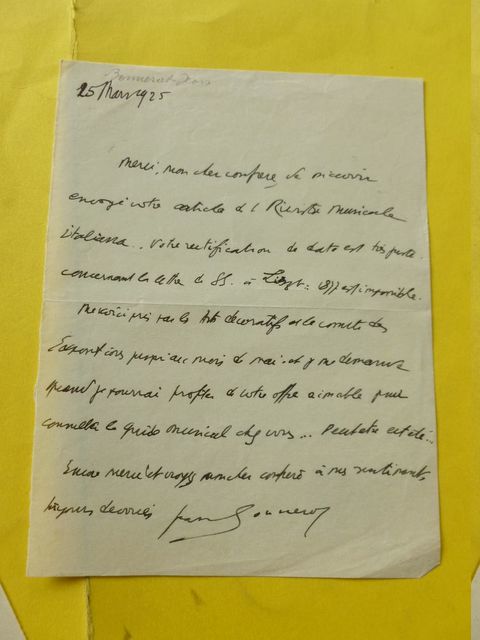 Bonnerot Jean
25 Mars 1925
Merci, mon cher confrère, de m'avoir
envoyé votre article de la Rivista musicale
italiana. Votre rectification de date est très juste
concernant la lettre de SS. à Liszt : 1877 est impossible.
Me voici pris par les Arts décoratifs et le comité des
Expositions jusqu'au mois de mai et je me demande
quand je pourrai profiter de votre offre aimable pour
consulter le guide musical chez vous... Peut-être cet été...
Encore merci et croyez mon cher confrère à mes sentiments
toujours dévoués Jean Bonnerot